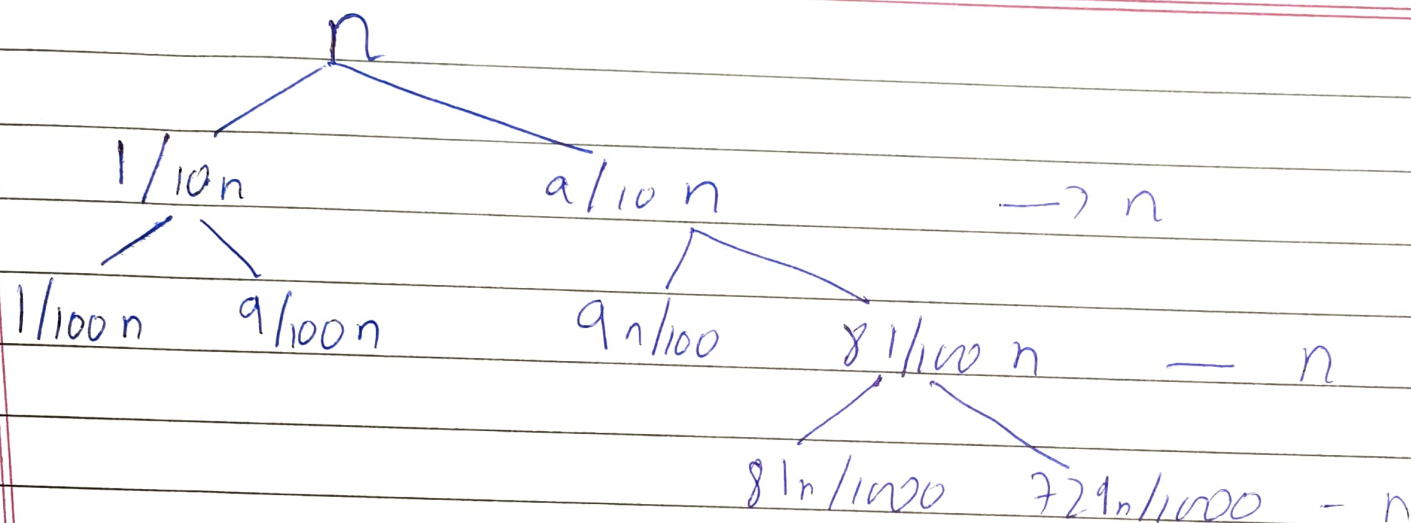 n
1/10n 9/10 n → n
1/100 n 9/100 n 9n/100 81/100 n — n
81n/1000 729n/1000 - n